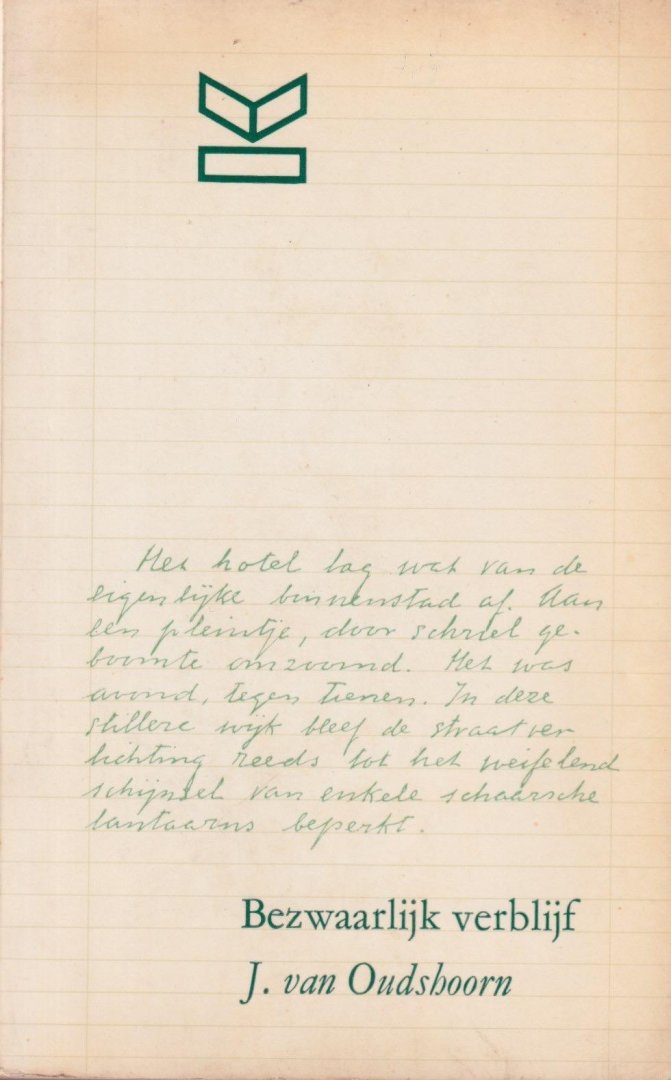 Het hotel lag wat van de
eigenlijke binnenstad af. Aan
een pleintje, door schriel ge-
boomte omzoomd. Het was
avond, tegen tienen. In deze
stillere wijk bleef de straatver
lichting reeds tot het weifelend
schijnsel van enkele schaarsche
lantaarns beperkt.
Bezwaarlijk verblijf
J. van Oudshoorn